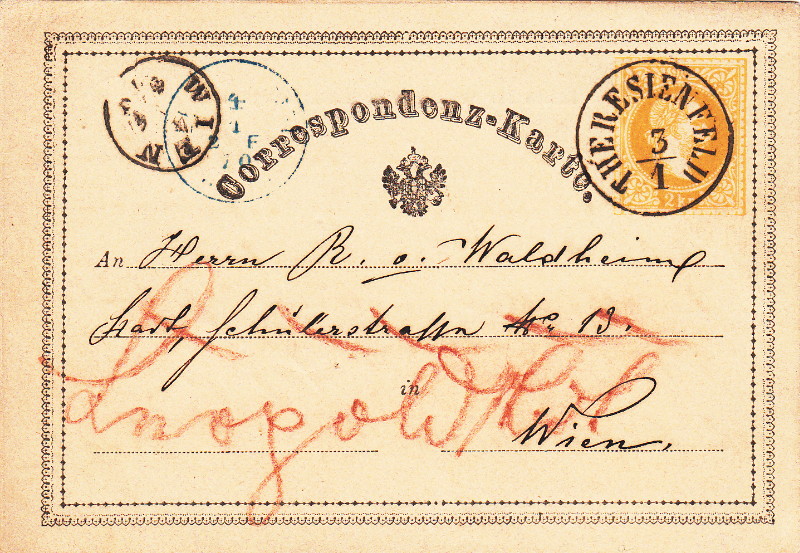 Correspondenz-Karte.
WIEN
4
1
70
THERESIENFELD
3
1
2
An Herrn R. v. Waldheim
Stadt, Schülerstrasse No 13.
in
Leopold
Wien,